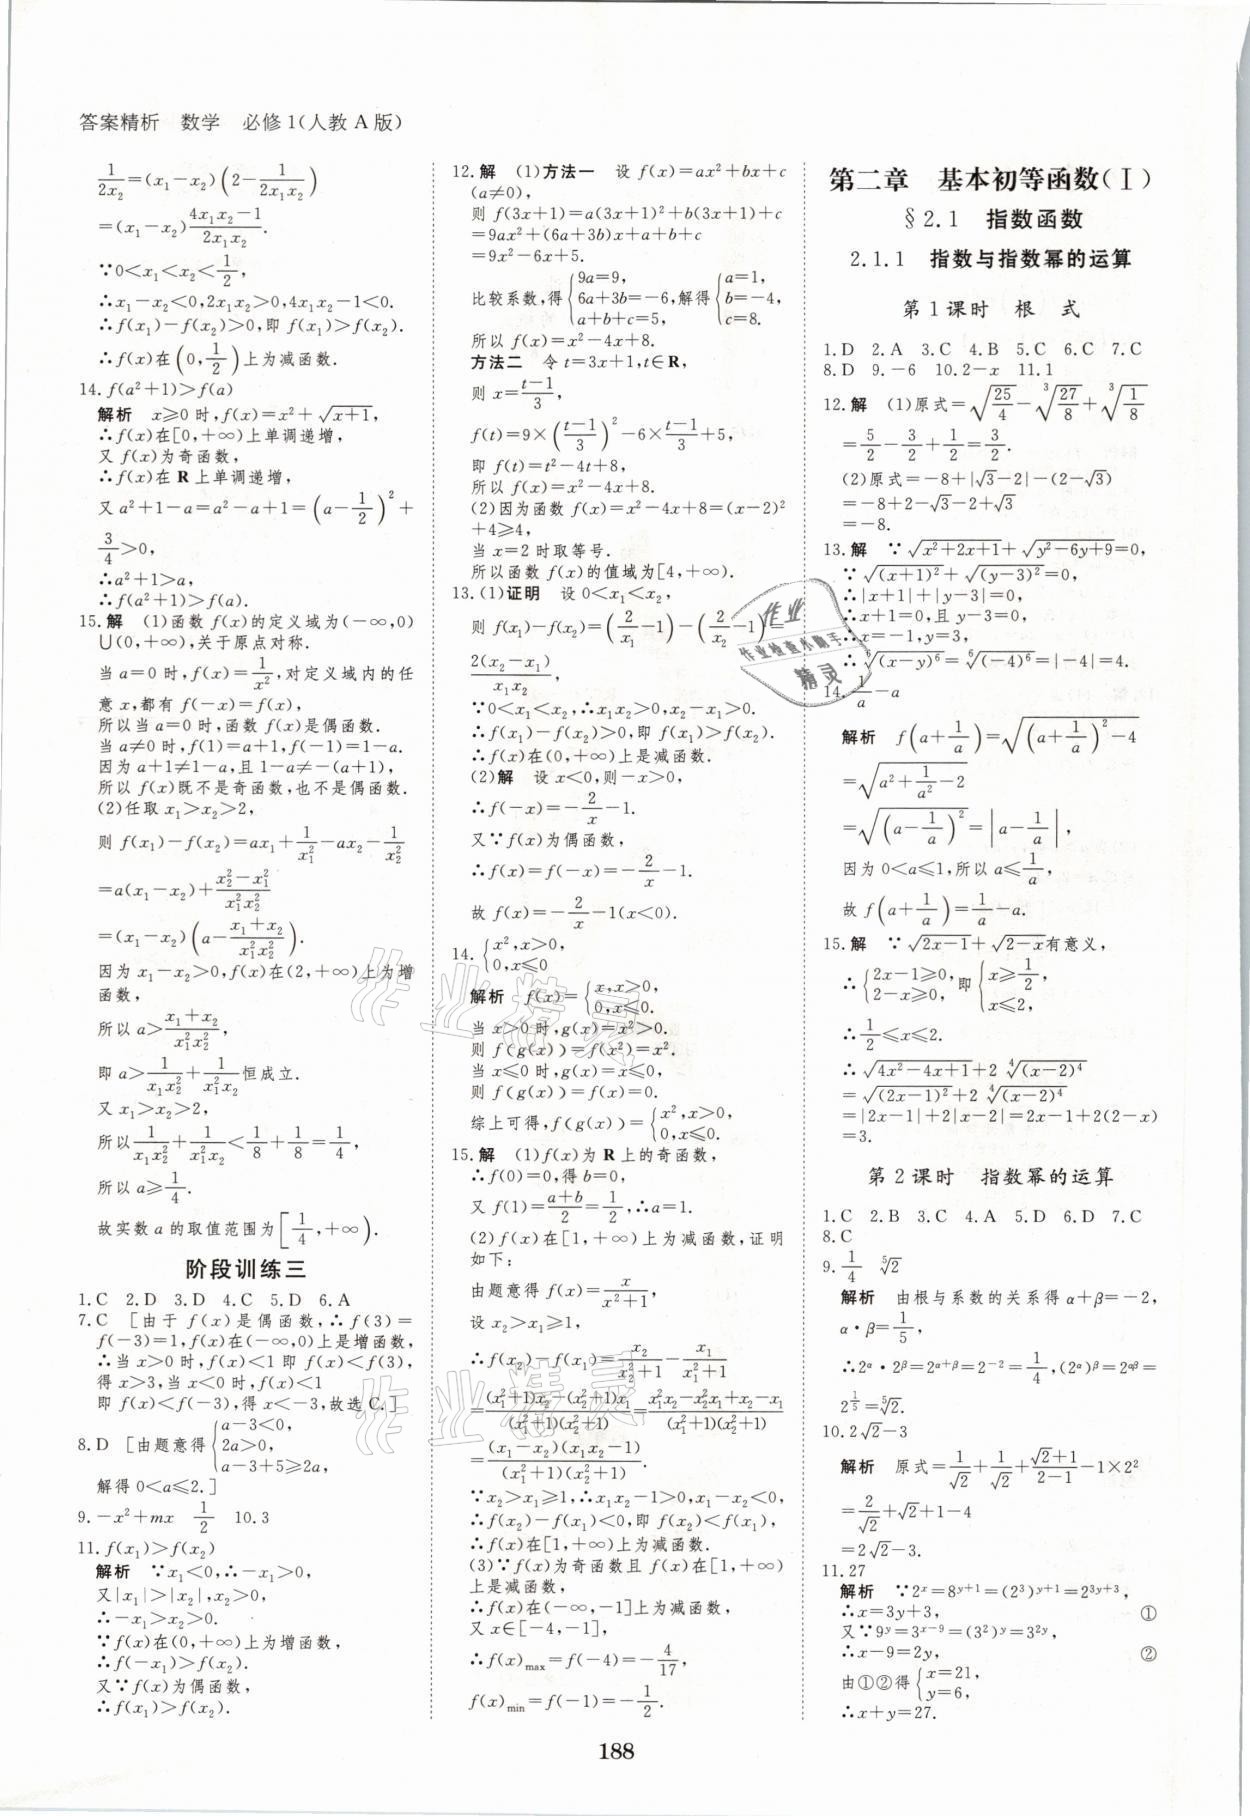 答案精析 数学 必修1(人教A版)
1/(2x₂)=(x₁-x₂)(2-1/(2x₁x₂))
=(x₁-x₂)(4x₁x₂-1)/(2x₁x₂).
∵0<x₁<x₂<1/2,
∴x₁-x₂<0,2x₁x₂>0,4x₁x₂-1<0.
∴f(x₁)-f(x₂)>0,即f(x₁)>f(x₂).
∴f(x)在(0,1/2)上为减函数.
14.f(a²+1)>f(a)
解析 x≥0时,f(x)=x²+√(x+1),
∴f(x)在[0,+∞)上单调递增,
又f(x)为奇函数,
∴f(x)在R上单调递增,
又a²+1-a=a²-a+1=(a-1/2)²+
3/4>0,
∴a²+1>a,
∴f(a²+1)>f(a).
15.解 (1)函数f(x)的定义域为(-∞,0)
∪(0,+∞),关于原点对称.
当a=0时,f(x)=1/x²,对定义域内的任
意x,都有f(-x)=f(x),
所以当a=0时,函数f(x)是偶函数.
当a≠0时,f(1)=a+1,f(-1)=1-a.
因为a+1≠1-a,且1-a≠-(a+1),
所以f(x)既不是奇函数,也不是偶函数.
(2)任取x₁>x₂>2,
则f(x₁)-f(x₂)=ax₁+1/x₁²-ax₂-1/x₂²
=a(x₁-x₂)+(x₂²-x₁²)/(x₁²x₂²)
=(x₁-x₂)(a-(x₁+x₂)/(x₁²x₂²)).
因为x₁-x₂>0,f(x)在(2,+∞)上为增
函数,
所以a>(x₁+x₂)/(x₁²x₂²),
即a>1/(x₁x₂²)+1/(x₁²x₂)恒成立.
又x₁>x₂>2,
所以1/(x₁x₂²)+1/(x₁²x₂)<1/8+1/8=1/4,
所以a≥1/4.
故实数a的取值范围为[1/4,+∞).
阶段训练三
1.C 2.D 3.D 4.C 5.D 6.A
7.C [由于f(x)是偶函数,f(3)=
f(-3)=1,f(x)在(-∞,0)上是增函数,
∴当x>0时,f(x)<1即f(x)<f(3),
得x>3,当x<0时,f(x)<1
即f(x)<f(-3),得x<-3,故选C.]
8.D [由题意得{a-3<0,
2a>0,
a-3+5≥2a,
解得0<a≤2.]
9.-x²+mx 1/2 10.3
11.f(x₁)>f(x₂)
解析 ∵x₁<0,∴-x₁>0,
又|x₁|>|x₂|,x₂>0,
∴-x₁>x₂>0.
∵f(x)在(0,+∞)上为增函数,
∴f(-x₁)>f(x₂).
又∵f(x)为偶函数,
∴f(x₁)>f(x₂).
12.解 (1)方法一 设f(x)=ax²+bx+c
(a≠0),
则f(3x+1)=a(3x+1)²+b(3x+1)+c
=9ax²+(6a+3b)x+a+b+c
=9x²-6x+5.
比较系数,得{9a=9,
6a+3b=-6,
a+b+c=5,
解得{a=1,
b=-4,
c=8.
所以f(x)=x²-4x+8.
方法二 令t=3x+1,t∈R,
则x=(t-1)/3,
f(t)=9×((t-1)/3)²-6×(t-1)/3+5,
即f(t)=t²-4t+8,
所以f(x)=x²-4x+8.
(2)因为函数f(x)=x²-4x+8=(x-2)²
+4≥4,
当x=2时取等号.
所以函数f(x)的值域为[4,+∞).
13.(1)证明 设0<x₁<x₂,
则f(x₁)-f(x₂)=(2/x₁-1)-(2/x₂-1)=
2(x₂-x₁)/(x₁x₂)
∵0<x₁<x₂,∴x₁x₂>0,x₂-x₁>0.
∴f(x₁)-f(x₂)>0,即f(x₁)>f(x₂).
∴f(x)在(0,+∞)上是减函数.
(2)解 设x<0,则-x>0,
∴f(-x)=-2/x-1.
又∵f(x)为偶函数,
∴f(x)=f(-x)=-2/x-1.
故f(x)=-2/x-1(x<0).
14.{x²,x>0,
0,x≤0
解析 f(x)={x,x>0,
0,x≤0.
当x>0时,g(x)=x²>0.
则f(g(x))=f(x²)=x².
当x≤0时,g(x)=x≤0,
则f(g(x))=f(x)=0.
综上可得,f(g(x))={x²,x>0,
0,x≤0.
15.解 (1)f(x)为R上的奇函数,
∴f(0)=0,得b=0,
又f(1)=(a+b)/2=1/2,∴a=1.
(2)f(x)在[1,+∞)上为减函数,证明
如下:
由题意得f(x)=x/(x²+1),
设x₂>x₁≥1,
∴f(x₂)-f(x₁)=x₂/(x₂²+1)-x₁/(x₁²+1)
=((x₁²+1)x₂-(x₂²+1)x₁)/((x₁²+1)(x₂²+1))=(x₁²x₂-x₂²x₁+x₂-x₁)/((x₁²+1)(x₂²+1))
=(x₁-x₂)(x₁x₂-1)/((x₁²+1)(x₂²+1)).
∵x₂>x₁≥1,∴x₁x₂-1>0,x₁-x₂<0,
∴f(x₂)-f(x₁)<0,即f(x₂)<f(x₁),
∴f(x)在[1,+∞)上为减函数.
(3)∵f(x)为奇函数且f(x)在[1,+∞)
上是减函数,
∴f(x)在(-∞,-1]上为减函数,
又x∈[-4,-1],
∴f(x)max=f(-4)=-4/17,
f(x)min=f(-1)=-1/2.
第二章 基本初等函数(Ⅰ)
§2.1 指数函数
2.1.1 指数与指数幂的运算
第1课时 根 式
1.D 2.A 3.C 4.B 5.C 6.C 7.C
8.D 9.-6 10.2-x 11.1
12.解 (1)原式=√(25/4)-³√(27/8)+³√(1/8)
=5/2-3/2+1/2=3/2.
(2)原式=-8+|√3-2|-(2-√3)
=-8+2-√3-2+√3
=-8.
13.解 ∵√(x²+2x+1)+√(y²-6y+9)=0,
∵√((x+1)²)+√((y-3)²)=0,
∴|x+1|+|y-3|=0,
∴x+1=0,且y-3=0,
∴x=-1,y=3,
∴⁶√((x-y)⁶)=⁶√((-4)⁶)=|-4|=4.
14.1/a-a
解析 f(a+1/a)=√((a+1/a)²-4)
=√(a²+1/a²-2)
=√((a-1/a)²)=|a-1/a|,
因为0<a≤1,所以a≤1/a,
故f(a+1/a)=1/a-a.
15.解 ∵√(2x-1)+√(2-x)有意义,
∴{2x-1≥0,
2-x≥0,
即{x≥1/2,
x≤2,
∴1/2≤x≤2.
∴√(4x²-4x+1)+2⁴√((x-2)⁴)
=√((2x-1)²)+2⁴√((x-2)⁴)
=|2x-1|+2|x-2|=2x-1+2(2-x)
=3.
第2课时 指数幂的运算
1.C 2.B 3.C 4.A 5.D 6.D 7.C
8.C
9.1/4 ⁵√2
解析 由根与系数的关系得α+β=-2,
α·β=1/5,
∴2^α·2^β=2^(α+β)=2⁻²=1/4,(2^α)^β=2^(αβ)=
2^(1/5)=⁵√2.
10.2√2-3
解析 原式=1/√2+1/√2+(√2+1)/(2-1)-1×2²
=2/√2+√2+1-4
=2√2-3.
11.27
解析 ∵2ˣ=8^(y+1)=(2³)^(y+1)=2^(3y+3),
∴x=3y+3, ①
又∵9^y=3^(x-9)=(3²)^y=3^(2y),
∴x-9=2y, ②
由①②得{x=21,
y=6,
∴x+y=27.
作业
作业检查小助手
精灵
作业精灵
作业精灵
188